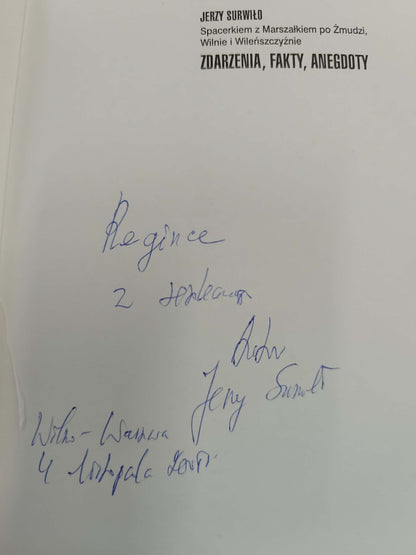 JERZY SURWIŁO
Spacerkiem z Marszałkiem po Żmudzi,
Wilnie i Wileńszczyźnie
ZDARZENIA, FAKTY, ANEGDOTY
Regince
z
Autor
Jerzy Surwiło
Wilno-Warszawa
4 listopada